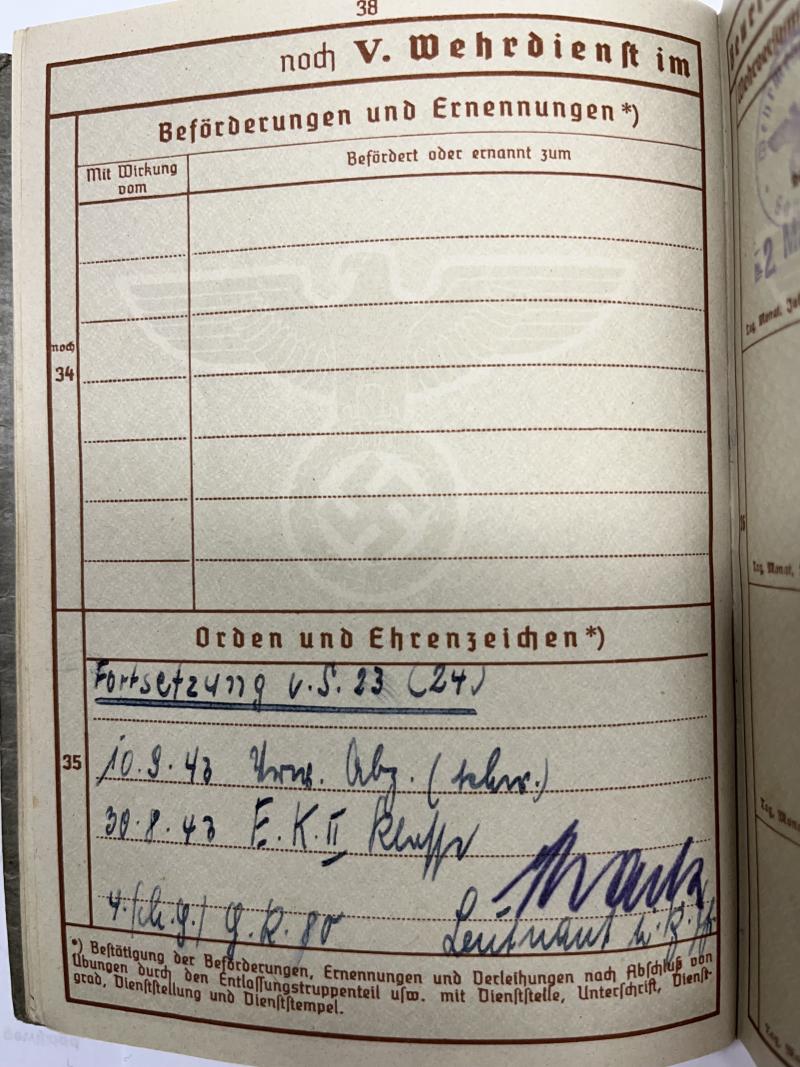 38
noch V. Wehrdienst im
Beförderungen und Ernennungen*)
Mit Wirkung
vom
Befördert oder ernannt zum
noch
34
Orden und Ehrenzeichen*)
Fortsetzung v. S. 23 (24)
35
10.9.43 Verw. Abz. (schw.)
30.8.43 E.K. II Klasse
4./sch.G./G.R. 80
Leutnant u. K. fh
*) Bestätigung der Beförderungen, Ernennungen und Verleihungen nach Abschluß von
Übungen durch den Entlassungstruppenteil usw. mit Dienststelle, Unterschrift, Dienst-
grad, Dienststellung und Dienststempel.
2. M
Tag, Monat, Jah
Tag, Monat,
Tag, Mona
Tag, Mon